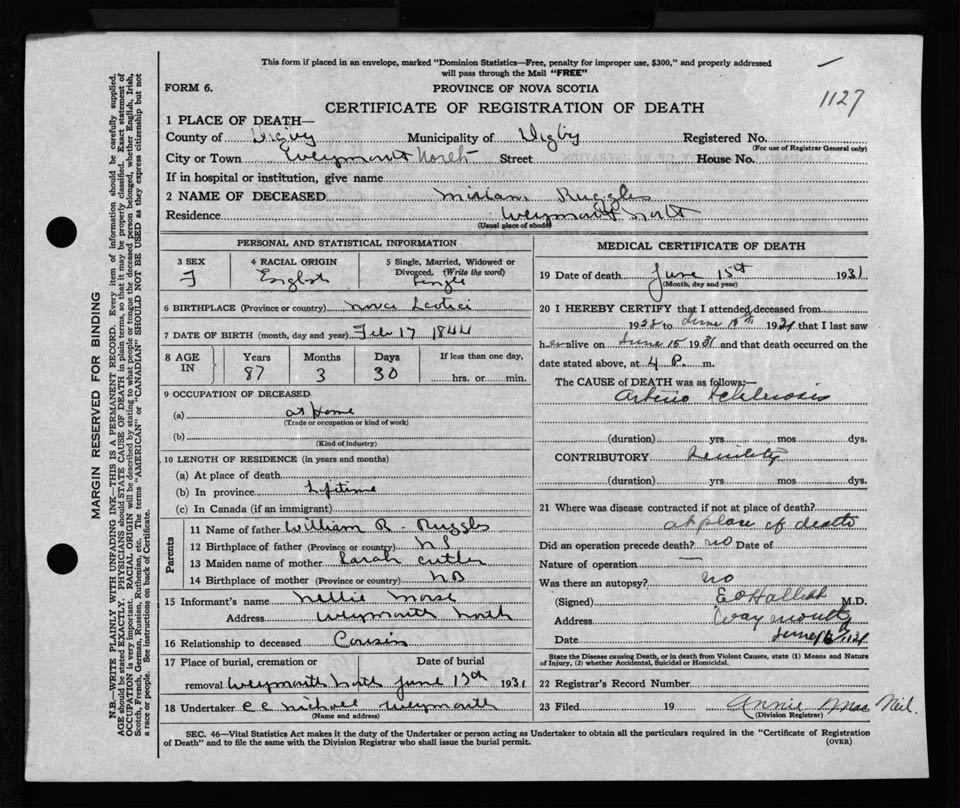 This form if placed in an envelope, marked "Dominion Statistics—Free, penalty for improper use, $300," and properly addressed
will pass through the Mail "FREE"
FORM 6.
PROVINCE OF NOVA SCOTIA
1127
CERTIFICATE OF REGISTRATION OF DEATH
1 PLACE OF DEATH—
County of Digby Municipality of Digby Registered No.
(For use of Registrar General only)
City or Town Weymouth North Street House No.
If in hospital or institution, give name
2 NAME OF DECEASED Miriam Ruggles
Residence Weymouth North
(Usual place of abode)
PERSONAL AND STATISTICAL INFORMATION
3 SEX 4 RACIAL ORIGIN 5 Single, Married, Widowed or
Divorced. (Write the word)
F English Single
6 BIRTHPLACE (Province or country) Nova Scotia
7 DATE OF BIRTH (month, day and year) Feb 17 1844
8 AGE IN Years Months Days If less than one day,
87 3 30 hrs. or min.
9 OCCUPATION OF DECEASED
(a) at Home
(Trade or occupation or kind of work)
(b)
(Kind of industry)
10 LENGTH OF RESIDENCE (in years and months)
(a) At place of death
(b) In province Lifetime
(c) In Canada (if an immigrant)
Parents
11 Name of father William R. Ruggles
12 Birthplace of father (Province or country) NS
13 Maiden name of mother Sarah Cutler
14 Birthplace of mother (Province or country) NB
15 Informant's name Nellie Morse
Address Weymouth North
16 Relationship to deceased Cousin
17 Place of burial, cremation or Date of burial
removal Weymouth North June 17th 1931
18 Undertaker C C Weymouth
(Name and address)
MEDICAL CERTIFICATE OF DEATH
19 Date of death June 15th 1931
(Month, day and year)
20 I HEREBY CERTIFY that I attended deceased from
1928 to June 15th 1931 that I last saw
her alive on June 15 1931 and that death occurred on the
date stated above, at 4 P. m.
The CAUSE of DEATH was as follows:—
Arterio Sclerosis
(duration) yrs. mos. dys.
CONTRIBUTORY Senility
(duration) yrs. mos. dys.
21 Where was disease contracted if not at place of death?
at place of death
Did an operation precede death? no Date of
Nature of operation —
Was there an autopsy? no
(Signed) M.D.
Address Weymouth
Date June 16 1931
State the Disease causing Death, or in death from Violent Causes, state (1) Means and Nature
of Injury, (2) whether Accidental, Suicidal or Homicidal.
22 Registrar's Record Number
23 Filed 19 Annie Mac Neil.
(Division Registrar)
SEC. 46—Vital Statistics Act makes it the duty of the Undertaker or person acting as Undertaker to obtain all the particulars required in the "Certificate of Registration
of Death" and to file the same with the Division Registrar who shall issue the burial permit. (OVER)
MARGIN RESERVED FOR BINDING
N.B.—WRITE PLAINLY WITH UNFADING INK—THIS IS A PERMANENT RECORD. Every item of information should be carefully supplied.
AGE should be stated EXACTLY. PHYSICIANS should STATE CAUSE OF DEATH in plain terms, so that it may be properly classified. Exact statement of
OCCUPATION is very important. RACIAL ORIGIN will be described by stating to what people or tongue the deceased person belonged, whether English, Irish,
Scotch, French, German, Russian, Ruthenian, etc. The terms "AMERICAN" or "CANADIAN" SHOULD NOT BE USED as they express citizenship but not
a race or people. See instructions on back of Certificate.